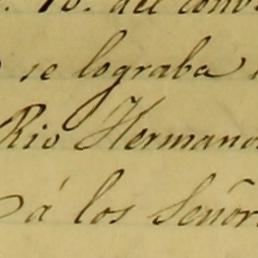 10. del conv
se lograba
Rio Hermano
á los Señor